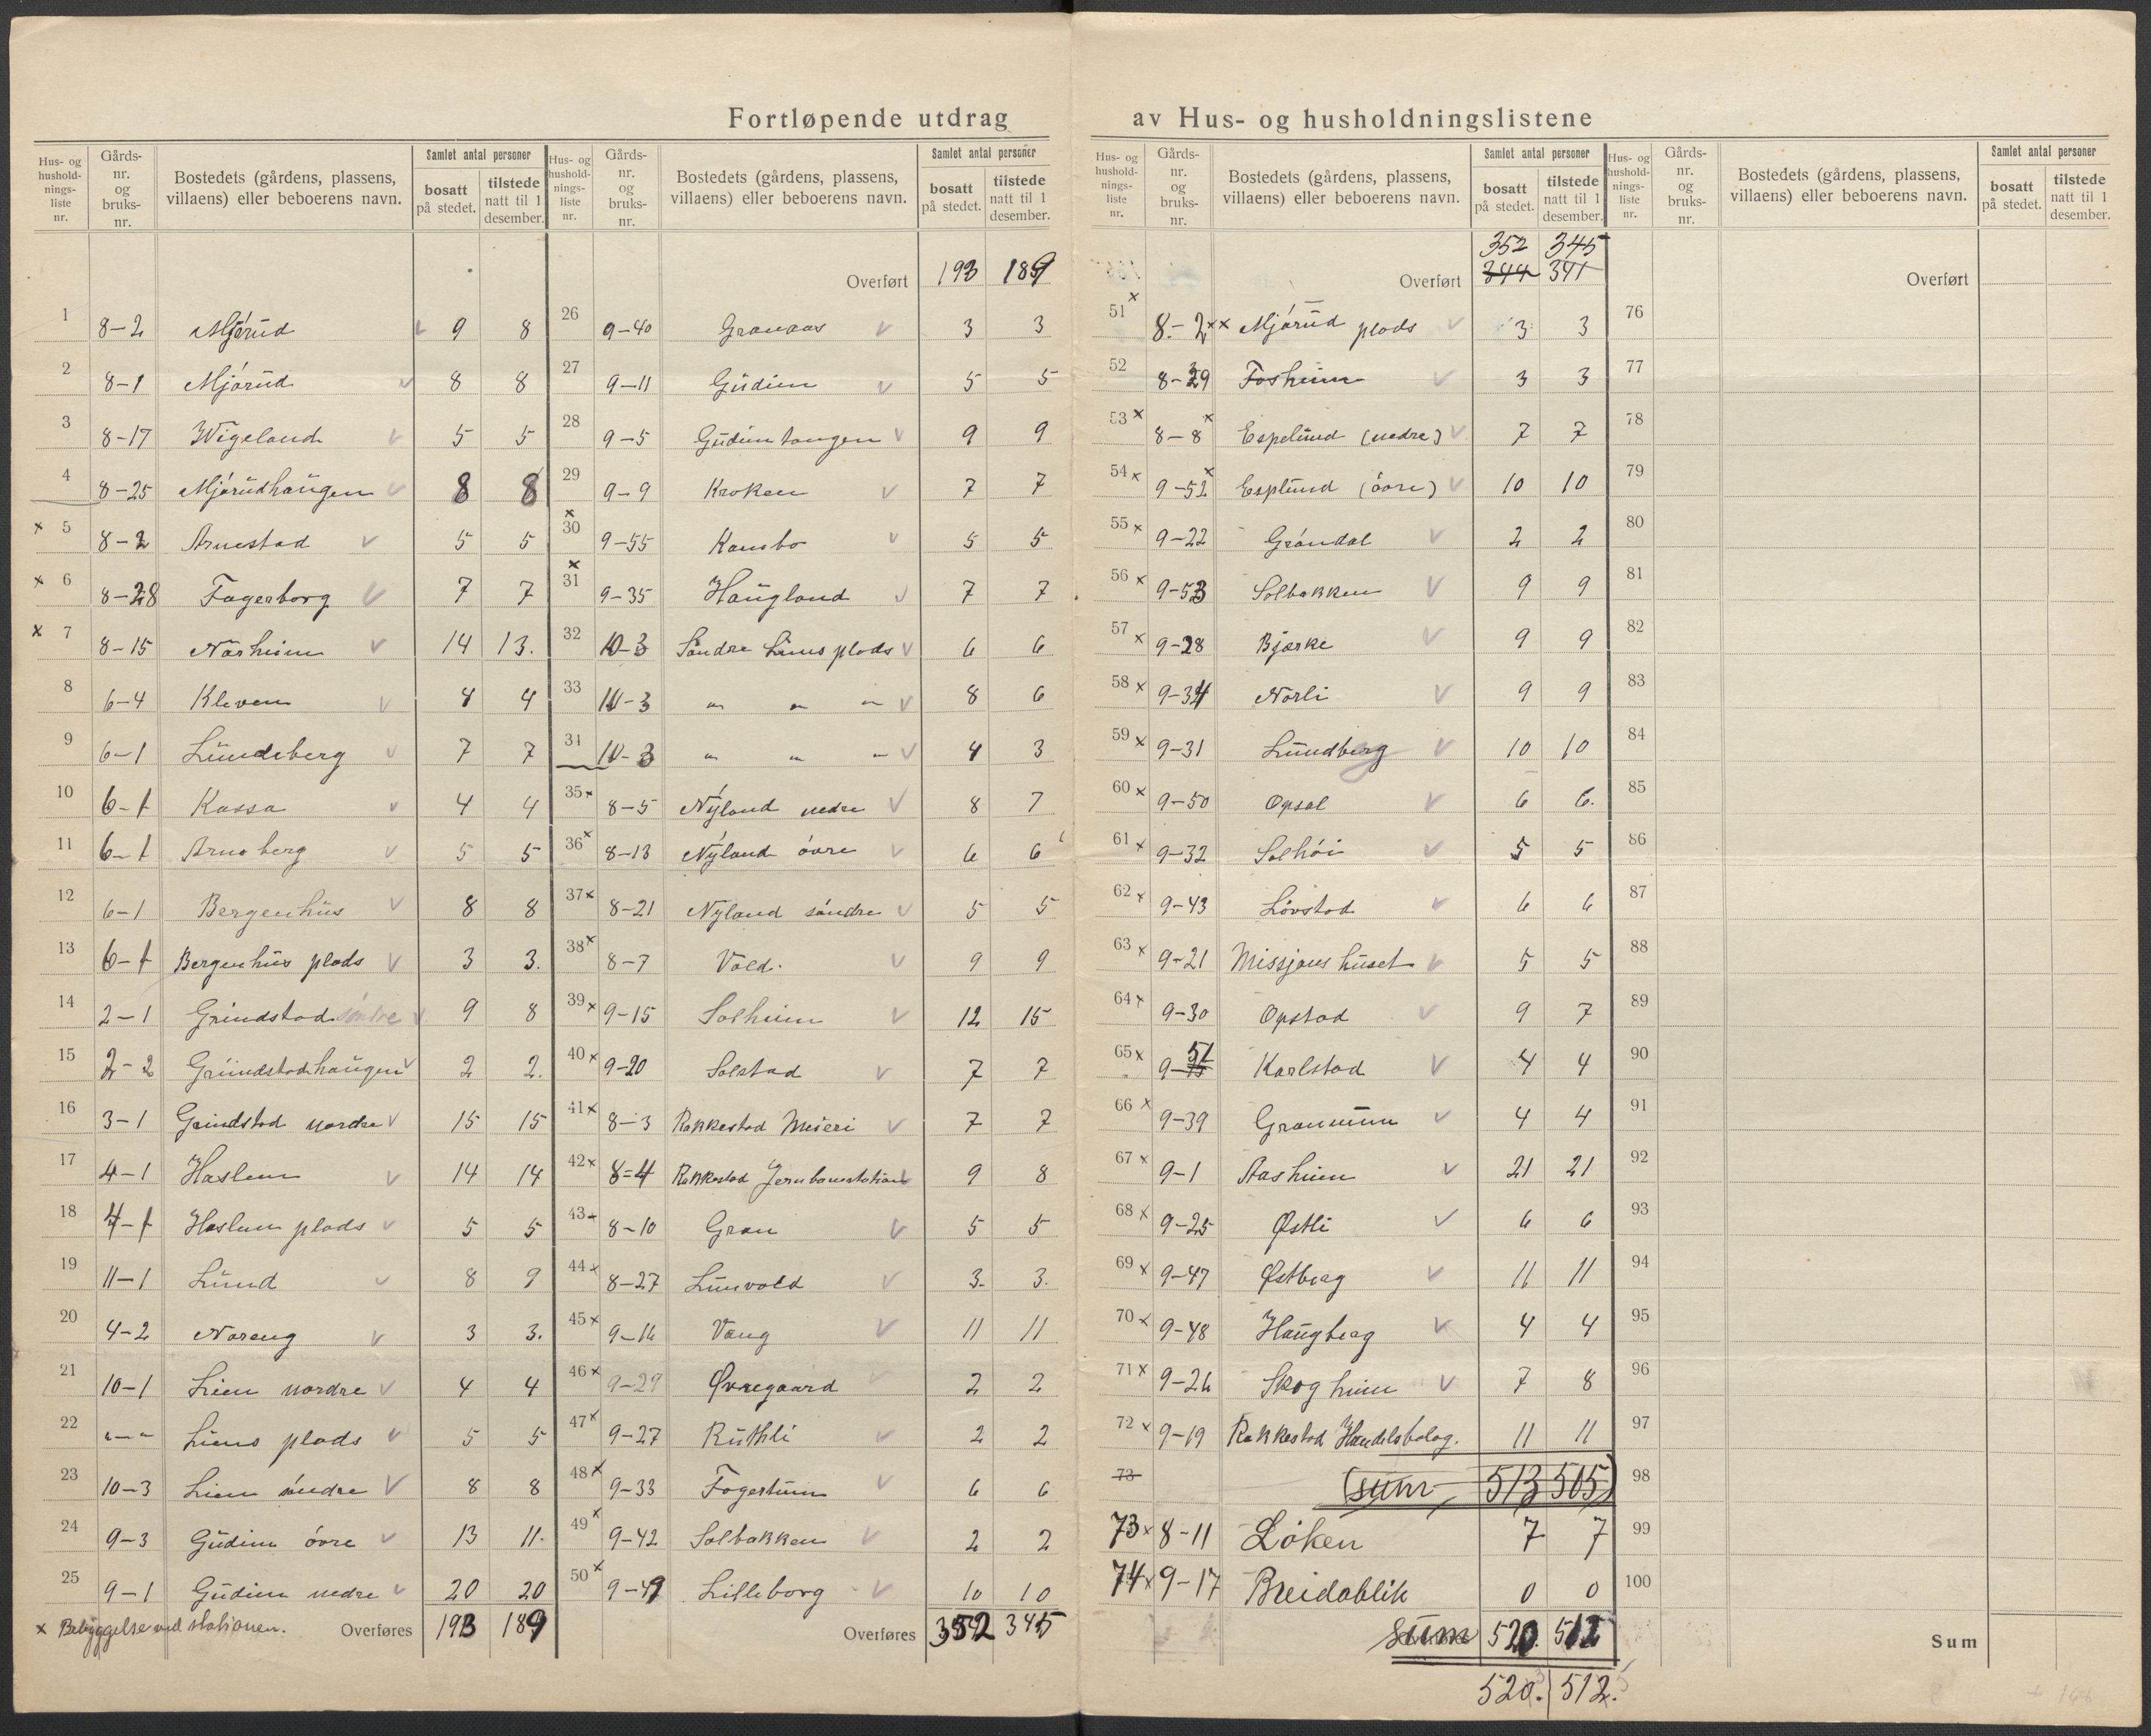 Fortløpende utdrag av Hus- og husholdningslistene
Hus- og husholdnings-liste nr. | Gårds-nr. og bruks-nr. | Bostedets (gårdens, plassens, villaens) eller beboerens navn. | Samlet antal personer | bosatt på stedet. | tilstede natt til 1 desember.
1 8-2 Mjørud 9 8
2 8-1 Mjørud 8 8
3 8-17 Wigeland 5 5
4 8-25 Mjørudhaugen 8 8
x 5 8-2 Arnestad 5 5
x 6 8-28 Fagerborg 7 7
x 7 8-15 Norheim 14 13.
8 6-4 Kleven 4 4
9 6-1 Lundeberg 7 7
10 6-1 Kassa 4 4
11 6-1 Arneberg 5 5
12 6-1 Bergenhus 8 8
13 6-1 Bergenhus plads 3 3.
14 2-1 Grindstad søndre 9 8
15 2-2 Grindstadhaugen 2 2.
16 3-1 Grindstad nordre 15 15
17 4-1 Haslem 14 14
18 4-1 Haslum plads 5 5
19 11-1 Lund 8 9
20 4-2 Noreng 3 3.
21 10-1 Lien nordre 4 4
22 "-" Liens plads 5 5
23 10-3 Lien søndre 8 8
24 9-3 Gudim övre 13 11.
25 9-1 Gudim nedre 20 20
x Bebyggelse ved stationen. Overføres 193 189
Hus- og husholdnings-liste nr. | Gårds-nr. og bruks-nr. | Bostedets (gårdens, plassens, villaens) eller beboerens navn. | Samlet antal personer | bosatt på stedet. | tilstede natt til 1 desember.
Overført 193 189
26 9-40 Granaas 3 3
27 9-11 Gudim 5 5
28 9-5 Gudimtangen 9 9
29 9-9 Kroken 7 7
30 x 9-55 Kansbo 5 5
31 x 9-35 Haugland 7 7
32 10-3 Søndre Liens plads 6 6
33 10-3 " " " 8 6
34 10-3 " " " 4 3
35 x 8-5 Nyland nedre 8 7
36 x 8-13 Nyland övre 6 6
37 x 8-21 Nyland söndre 5 5
38 x 8-7 Vold. 9 9
39 x 9-15 Solheim 12 15
40 x 9-20 Solstad 7 7
41 x 8-3 Rakkestad Meieri 7 7
42 x 8=4 Rakkestad Jernbanestation 9 8
43 x 8-10 Gran 5 5
44 x 8-27 Linvold 3. 3.
45 x 9-16 Vang 11 11
46 x 9-29 Øvregaard 2 2
47 x 9-27 Ruthli 2 2
48 x 9-33 Fagertun 6 6
49 x 9-42 Solbakken 2 2
50 x 9-49 Lilleborg 10 10
Overføres 352 345
Hus- og husholdnings-liste nr. | Gårds-nr. og bruks-nr. | Bostedets (gårdens, plassens, villaens) eller beboerens navn. | Samlet antal personer | bosatt på stedet. | tilstede natt til 1 desember.
352 345
Overført 344 341
51 x 8-2 xx Mjørud plads 3 3
52 8-29 Fosheim 3 3
53 x 8-8 x Espelund (nedre) 7 7
54 x 9-52 x Esplund (övre) 10 10
55 x 9-22 Gröndal 2 2
56 x 9-53 Solbakken 9 9
57 x 9-28 Bjerke 9 9
58 x 9-34 Norli 9 9
59 x 9-31 Lundberg 10 10
60 x 9-50 Opsal 6 6.
61 x 9-32 Solhöi 5 5
62 x 9-43 Lövstad 6 6
63 x 9-21 Missjonshuset 5 5
64 x 9-30 Opstad 9 7
65 x 9-51 Karlstad 4 4
66 x 9-39 Granmum 4 4
67 x 9-1 Aasheim 21 21
68 x 9-25 Østli 6 6
69 x 9-47 Østberg 11 11
70 x 9-48 Haugberg 4 4
71 x 9-26 Skogheim 7 8
72 x 9-19 Rakkestad Handelsbolag. 11 11
73 (sum 513 505)
73 x 8-11 Løken 7 7
74 x 9-17 Breidablik 0 0
sum 520. 512
520. 512.
Hus- og husholdnings-liste nr. | Gårds-nr. og bruks-nr. | Bostedets (gårdens, plassens, villaens) eller beboerens navn. | Samlet antal personer | bosatt på stedet. | tilstede natt til 1 desember.
Overført
76
77
78
79
80
81
82
83
84
85
86
87
88
89
90
91
92
93
94
95
96
97
98
99
100
Sum